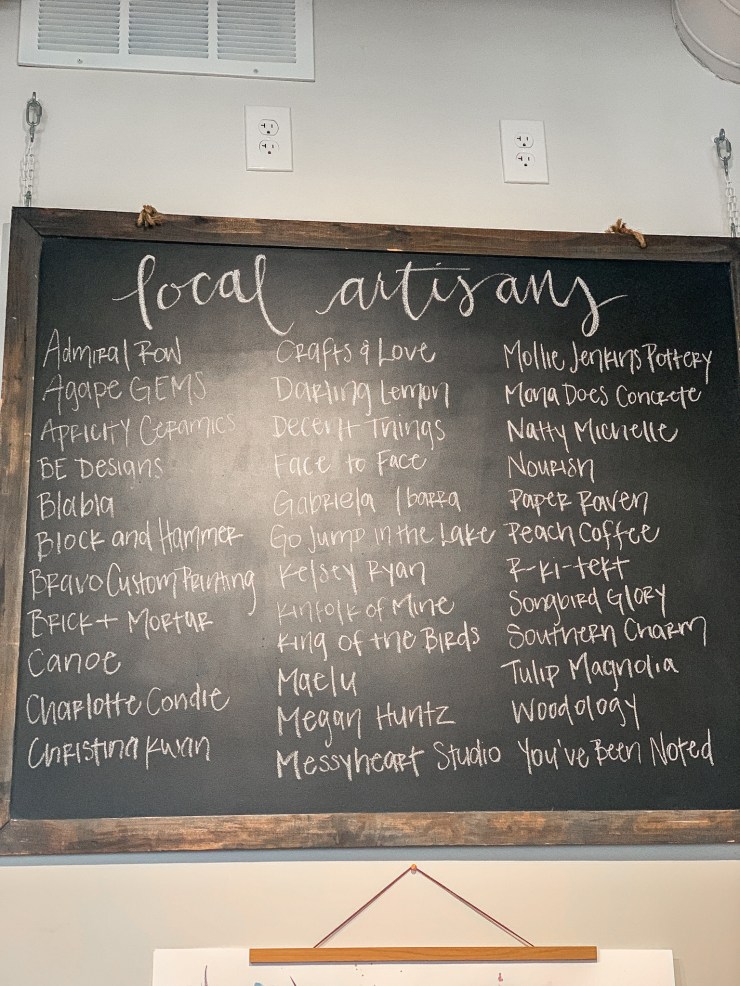 local artisans
Admiral Row
Agape GEMS
Apricity Ceramics
BE Designs
Blabla
Block and Hammer
Bravo Custom Printing
Brick + Mortar
Canoe
Charlotte Condie
Christina Kwan
Crafts & Love
Darling Lemon
Decent Things
Face to Face
Gabriela Ibarra
Go Jump in the Lake
Kelsey Ryan
Kinfolk of Mine
King of the Birds
Maelu
Megan Huntz
Messyheart Studio
Mollie Jenkins Pottery
Mona Does Concrete
Natty Michelle
Nourish
Paper Raven
Peach Coffee
R-ki-tekt
Songbird Glory
Southern Charm
Tulip Magnolia
Woodology
You've Been Noted